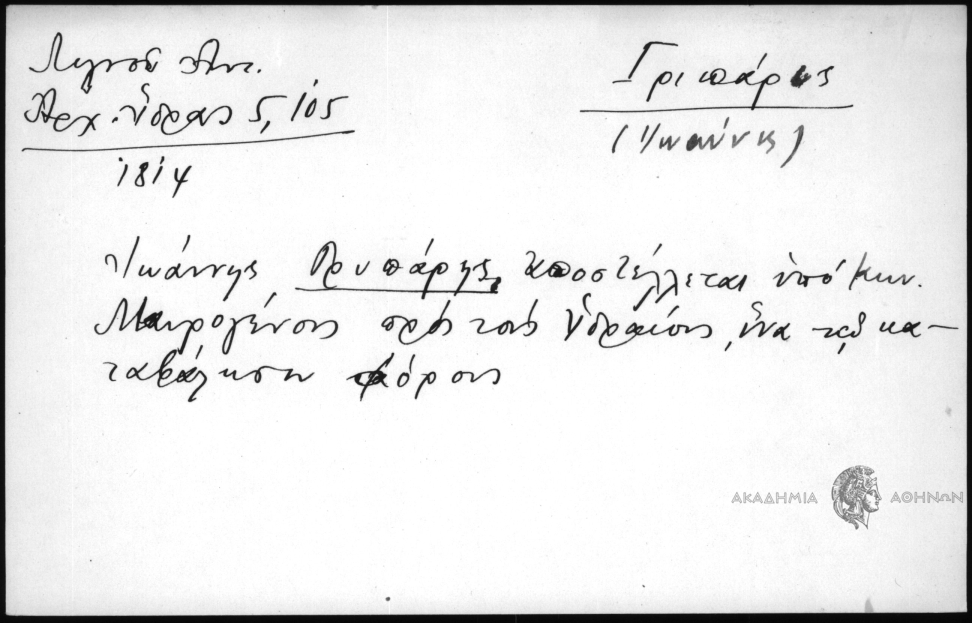 Λιγνοῦ Ἀντ.
Ἀρχ. Ὕδρας 5, 105
1814
Γριπάρης
(Ἰωάννης)
Ἰωάννης Γρυπάρης, ἀποστέλλεται ὑπὸ
Μαυρογένους πρὸς τοὺς Ὑδραίους, ἵνα τῷ κα-
ταβάλωσιν φόρους
ΑΚΑΔΗΜΙΑ ΑΘΗΝΩΝ